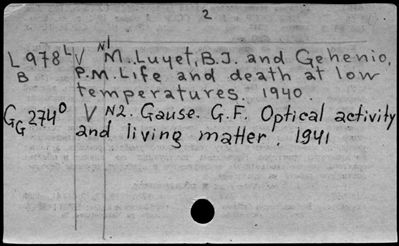 2
L978L B V N1 M. Luyet, B.J. and Gehenio,
P.M. Life and death at low
temperatures. 1940.
GG274O V N2. Gause. G.F. Optical activity
and living matter. 1941